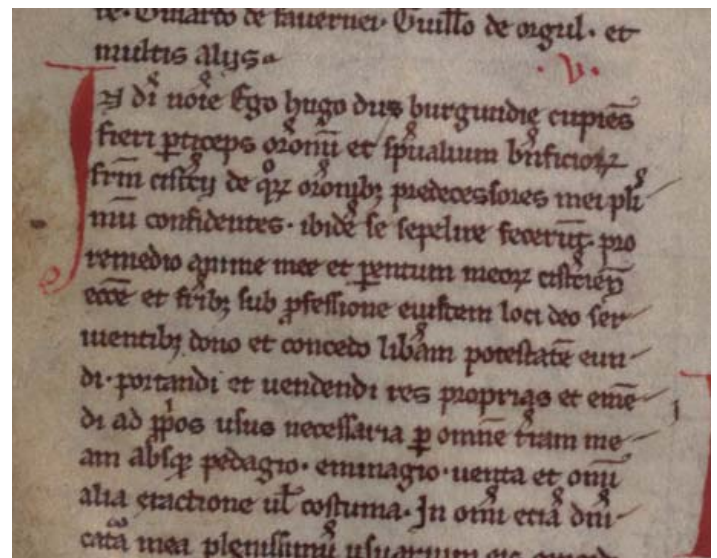 te. Girardo de fauernei. Guill'o de orgul. et
multis alijs.
.V.
In di noie Ego hugo dux burgundie cupiēs
fieri ꝑticeps oronū et sp̄ualium bn̄ficioꝝ
frm̄ cistcij de qꝝ oronibꝫ predecessores mei pli
mū confidentes. ibidē se sepelire fecerūt. pro
remedio anime mee et ꝑentum meoꝝ cistcieñ
ecce et fribꝫ sub ꝓfessione eiusdem loci deo ser
uentibꝫ dono et concedo lib̄am potestatē eun
di. portandi et uendendi res proprias et emē
di ad ꝓpos usus necessaria ꝑ omnē tram me
am absqꝫ pedagio. eminagio. uenta et omī
alia exactione ul' costuma. In omī etiā dn̄i
catā mea plenissimū usuarium